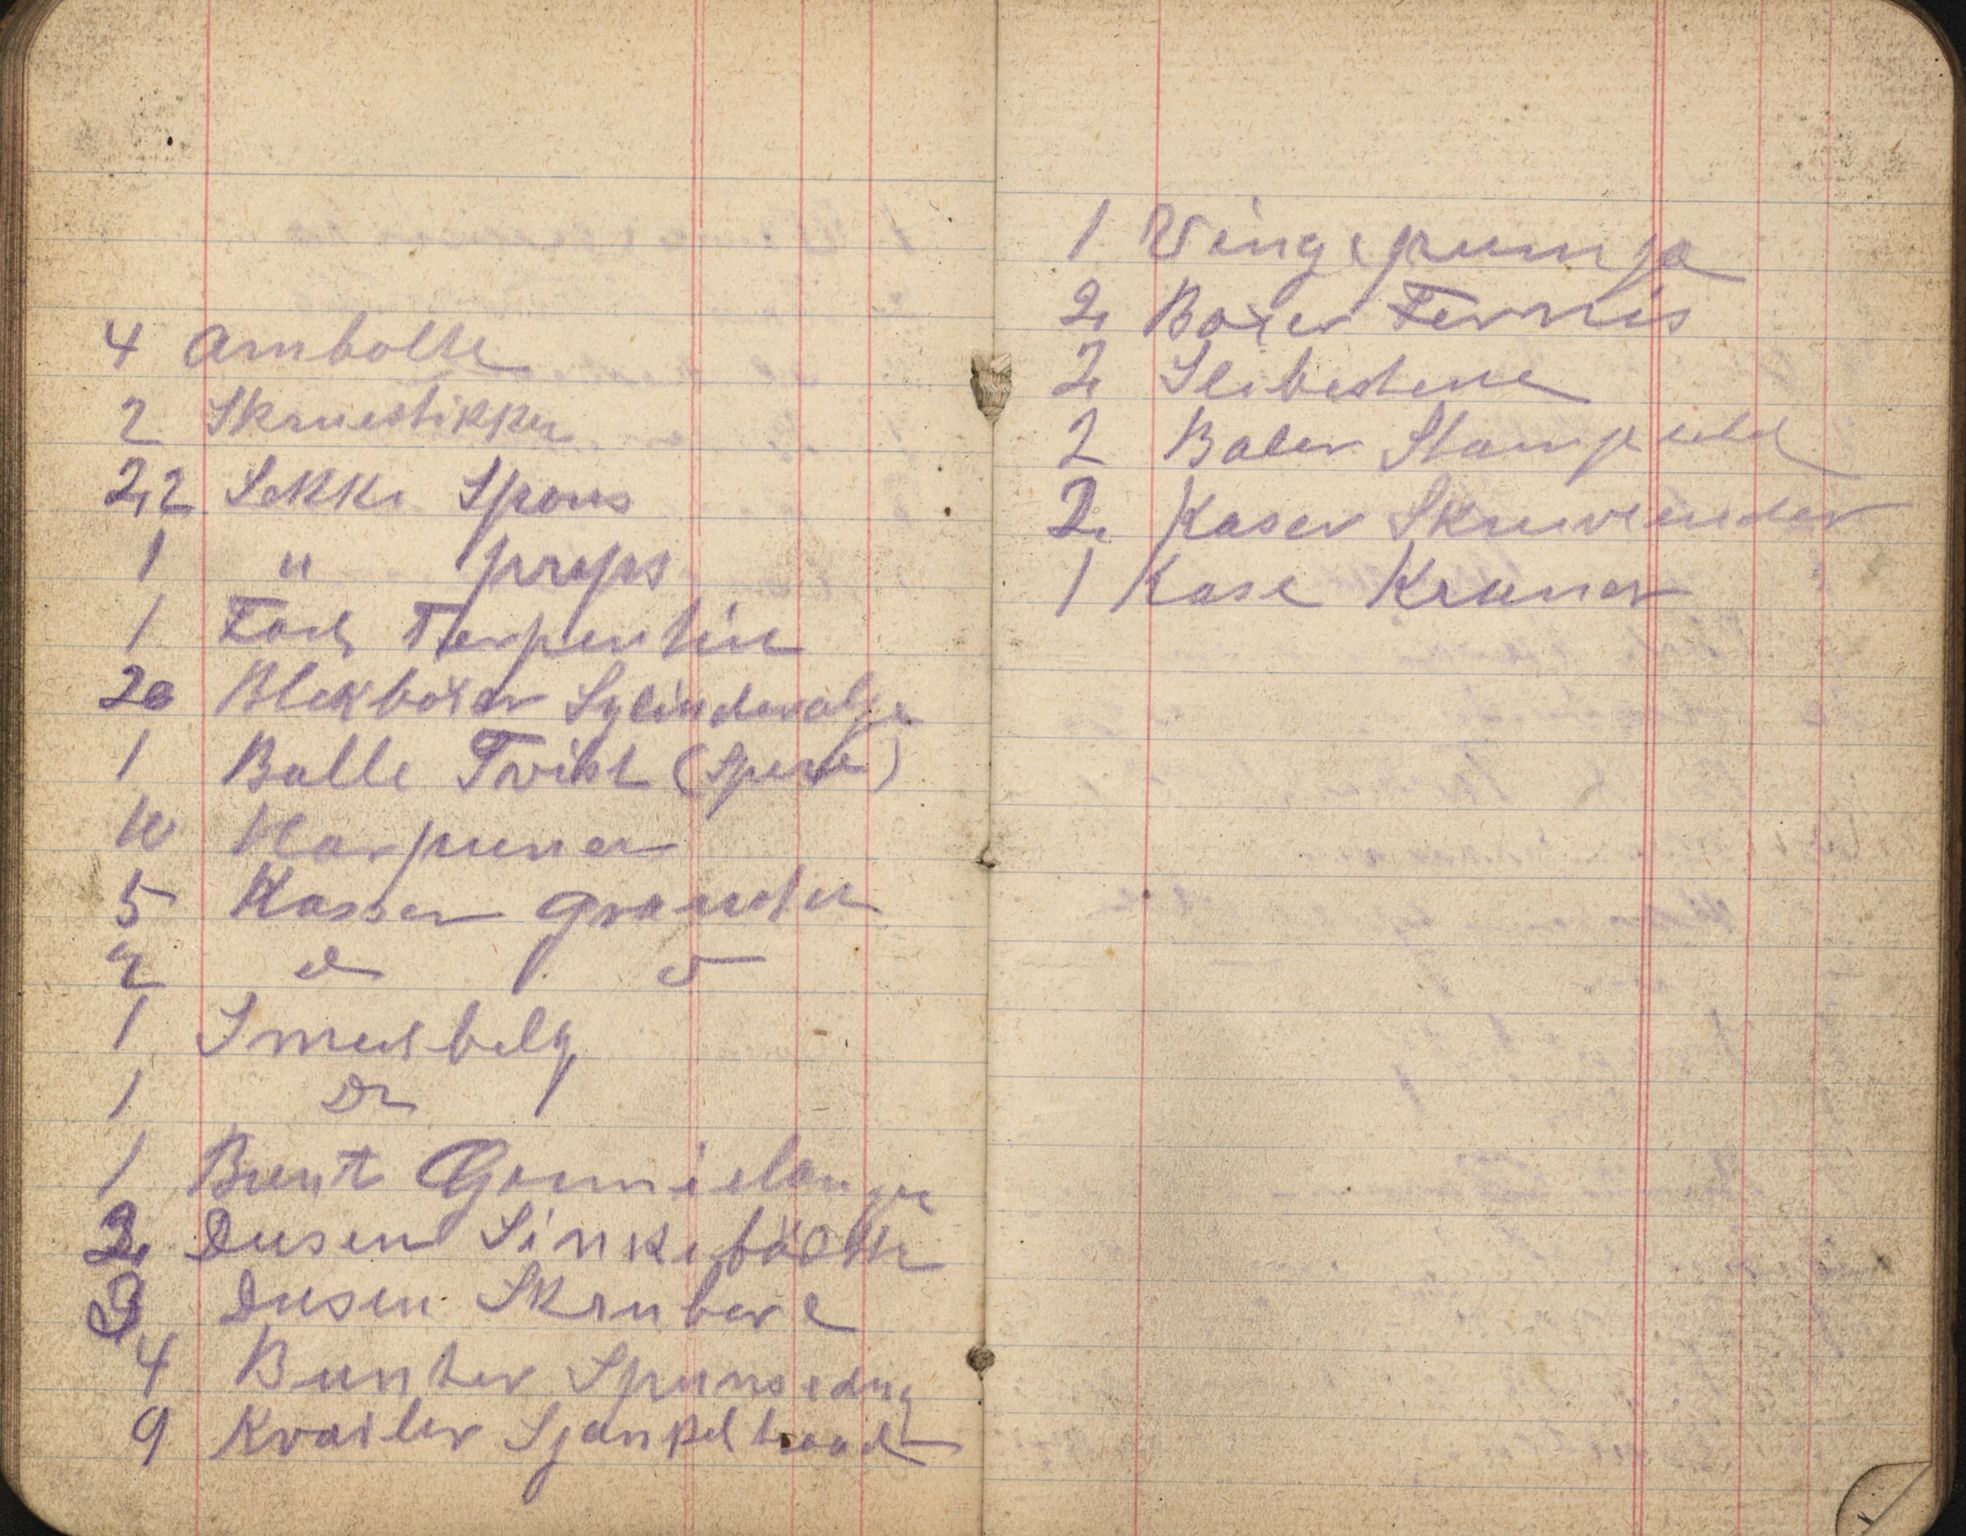 4 Ambolte
2 Skruestikker
2,2 Sekke Spons
1 " props
1 Fad Terpentin
20 Blekboxer Sylinderolje
1 Balle Tvist (Spese)
10 Harpuner
5 Kasser Granater
2 do do
1 Smedbelg
1 Do
1 Bunt Gumislanger
2 Dusen Sinkebøtte
3 Dusen Skrubere
4 Bunter Spunsedug
9 Kvæiler Sjænkeltraad
1 Vingepumpe
2 Boxer Fernis
2 Slibestene
2 Baler Stampeeld
2 Kaser Skruvender
1 Kase Kruner